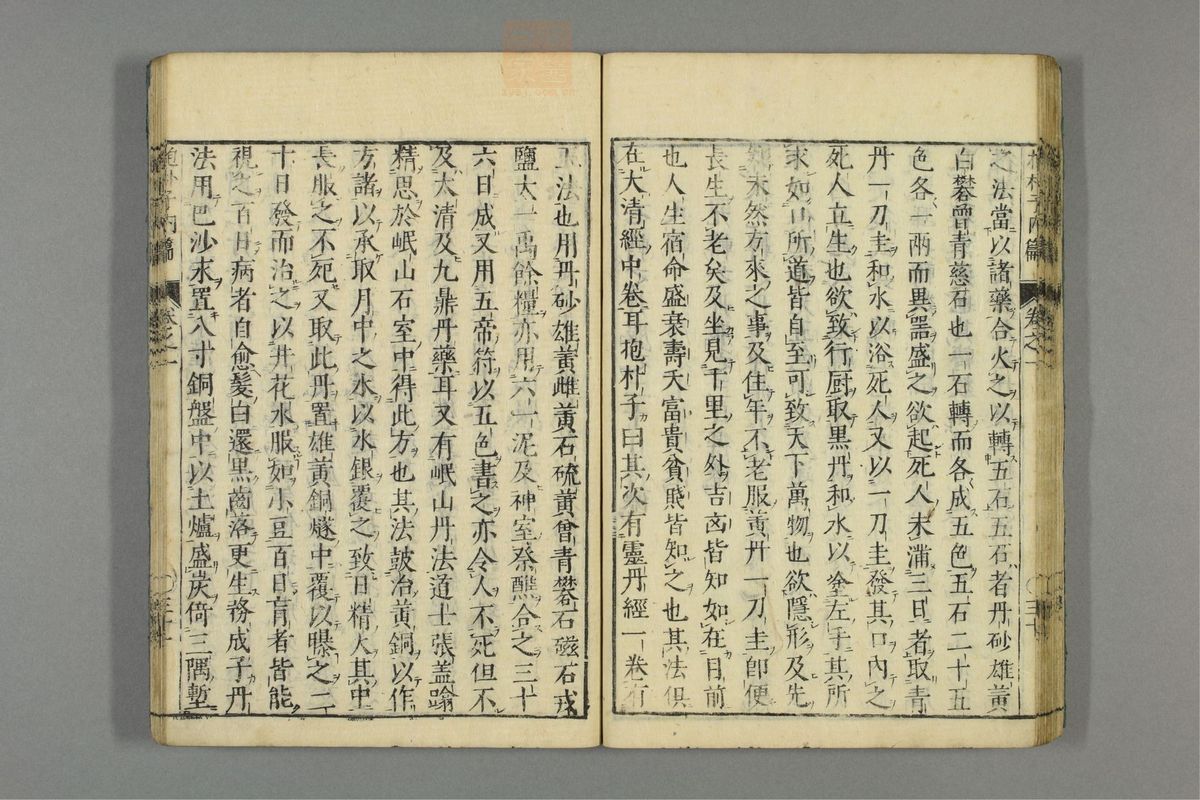 之法當以諸藥合火之以轉五石五石者丹砂雄黃
白礬曾青慈石也一石轉而各成五色五石二十五
色各一兩而異噐盛之欲起死人未滿三日者取青
丹一刀圭和水以浴死人又以一刀圭發其口內之
死人立生也欲致行厨取黑丹和水以塗左手其所
求如口所道皆自至可致天下萬物也欲隱形及先
知未然方來之事及住年不老服黃丹一刀圭即便
長生不老矣及坐見千里之外吉凶皆知如在目前
也人生宿命盛衰壽夭富貴貧賤皆知之也其法俱
在大清經中卷耳抱朴子曰其次有靈丹經一卷有
法也用丹砂雄黃雌黃石硫黃曾青礬石磁石戎
鹽太一禹餘糧亦用六一泥及神室祭醮合之三十
六日成又用五帝符以五色書之亦令人不死但不
及太清及九鼎丹藥耳又有岷山丹法道士張盖蹹
精思於岷山石室中得此方也其法皷冶黃銅以作
方諸以承取月中之水以水銀覆之致日精火其中
長服之不死又取此丹置雄黃銅燧中覆以曝之二
十日發而治之以井花水服如小豆百日盲者皆能
視之百日病者自愈髪白還黑齒落更生務成子丹
法用巴沙汞置八寸銅盤中以土爐盛炭倚三隅塹